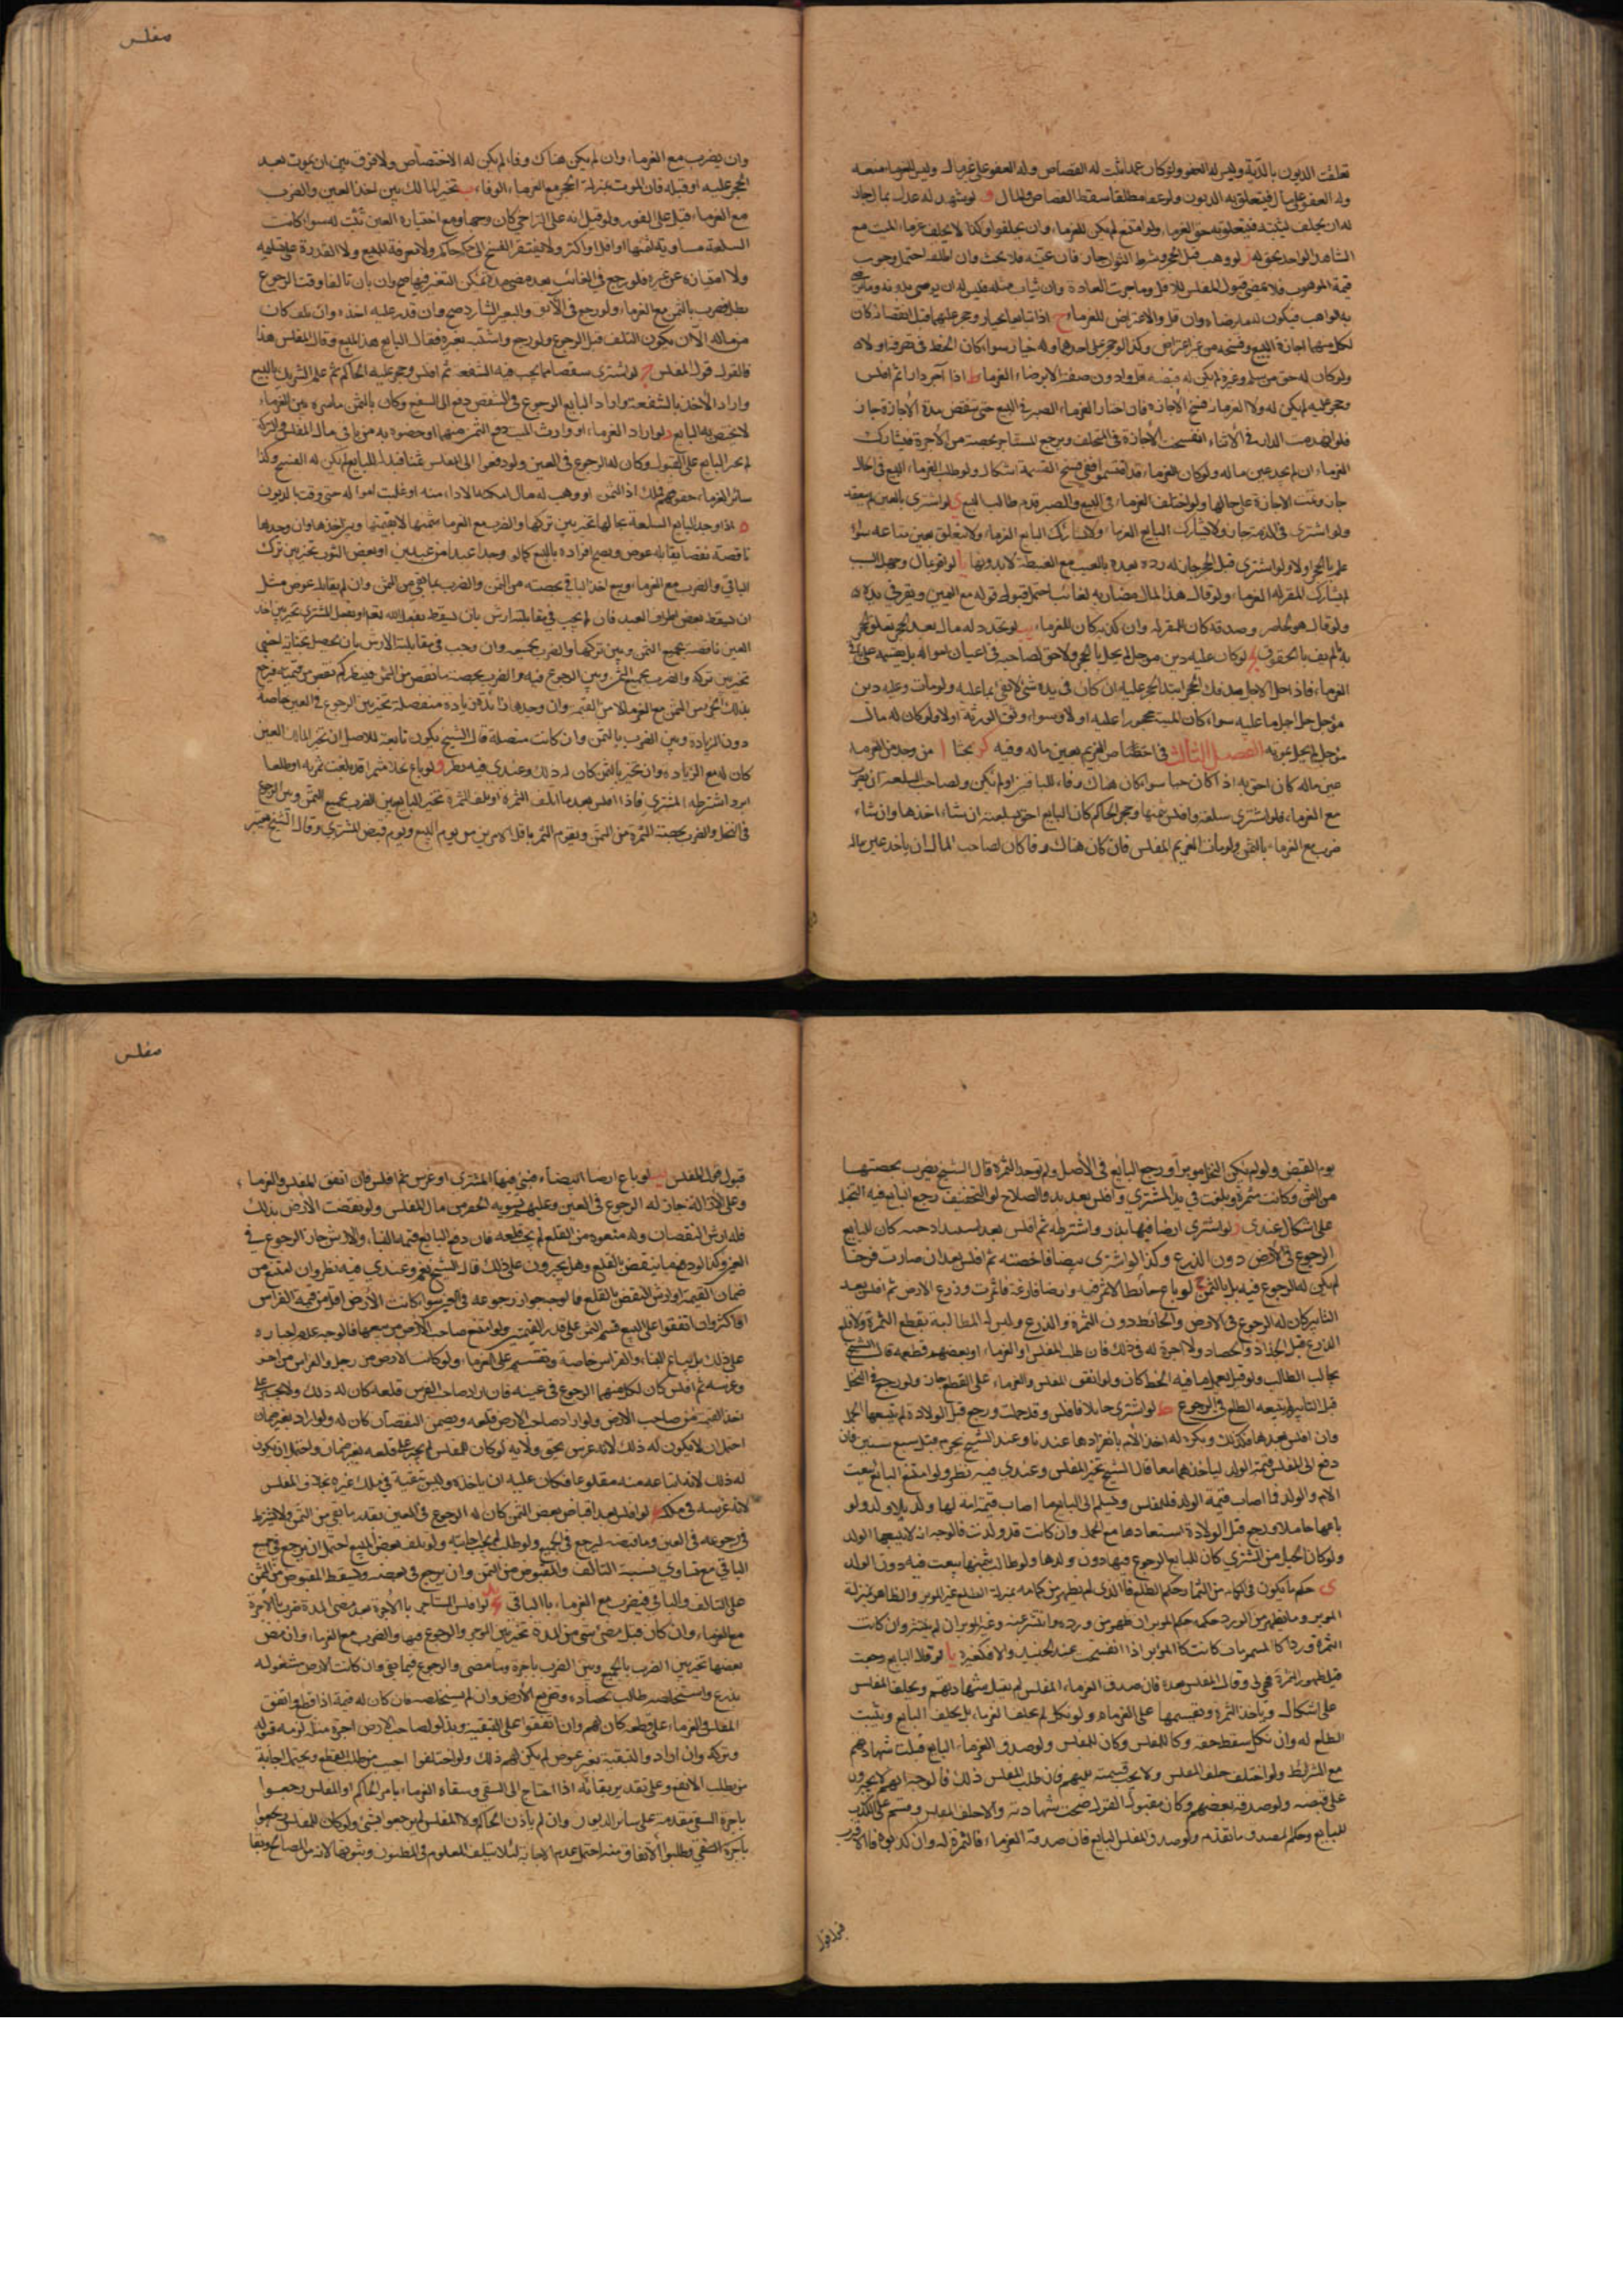 مفلس
تعلقت الديون بالدية وليس له العفو ولو كان عمدا ثبت له القصاص وله العفو على غير مال وليس للغرماء منعه
وله العفو على مال فيتعلق به الديون ولو عفا مطلقا سقط القصاص والمال و لو شهد له عدل بمال جاز
له ان يحلف ليثبته فيتعلق به حق الغرماء ولو امتنع لم يكن للغرماء ان يحلفوا وكذا لا يحلف غرماء الميت مع
الشاهد الواحد بحق له ز لو وهب قبل الحجر وشرط الثواب جاز فان عينه فلا بحث وان اطلقه احتمل وجوب
قيمة الموهوب فلا يمضي قبول المفلس للاقل وما جرت العادة وان يثاب مثله فليس له ان يرضى بدونه وما يرضى
به الواهب فيكون له ما رضاه وان قل ولا اعتراض للغرماء ح اذا تبايعا بخيار وحجر عليهما قبل انقضائه كان
لكل منهما اجازة البيع وفسخه من غير اعتراض وكذا لو حجر على احدهما وله خيار سواء كان الحظ في تصرفه اولا
ولو كان له حق من سلم وغيره لم يكن له قبضه اقل وادون صفة الا برضاء الغرماء ط اذا آجر دارا ثم افلس
وحجر عليه لم يكن له ولا للغرماء فسخ الاجازة فان اختار الغرماء الصبر في البيع حتى تنقضي مدة الاجارة جاز
فلو انهدمت الدار في الاثناء انفسخت الاجارة في المتخلف ويرجع المستاجر بحصته من الاجرة فيشارك
الغرماء ان لم يجد عين ماله ولو كان الغرماء قد اقتسموا ففي فسخ القسمة اشكال ولو طلب الغرماء البيع في الحال
جاز وبقت الاجازة على حالها ولو اختلف الغرماء في البيع والصبر قدم طالب البيع ي لو اشترى بالعين لم ينعقد
ولو اشترى في الذمة جاز ولا يشارك البايع الغرماء ولا يشارك البايع الغرماء ولا يتعلق بعين متاعه سواء
علم بالحجر اولا ولو اشترى قبل الحجر جاز له رده بعده بالعيب مع الغبطة لا بدونها يا لو اقر بمال وجهل السبب
لم يشارك المقر له الغرماء ولو قال هذا المال مضاربة لغائب احتمل قبول قوله مع اليمين ويقر في يده
ولو قال هو لحاضر وصدقه كان للمقر له وان كذبه كان للغرماء يب لو تجدد له مال بعد الحجر تعلق الحجر
به ان لم يف بالحقوق يج لو كان عليه دين مؤجل لم يحل بالحجر ولا حق لصاحبه في اعيان امواله بل يقسم على
الغرماء فاذا حل الاجل بعد فك الحجر ابتدأ الحجر عليه ان كان في يده شئ لا يفي بما عليه ولو مات وعليه دين
مؤجل حل اجل ما عليه سواء كان الميت محجورا عليه اولا وسواء وثق الورثة اولا ولو كان له مال
مؤجل لم يحل بموته الفصل الثالث في اختصاص الغريم بعين ماله وفيه كو بحثا ا من وجد من الغرماء
عين ماله كان احق به اذا كان حيا سواء كان هناك وفاء للباقين او لم يكن ولصاحب السلعة ان يضرب
مع الغرماء فلو اشترى سلعة وافلس بثمنها وحجر الحاكم كان البايع احق بسلعته ان شاء اخذها وان شاء
ضرب مع الغرماء بالثمن ولو مات الغريم المفلس فان كان هناك وفاء كان لصاحب المال ان ياخذ عين ماله
وان يضرب مع الغرماء وان لم يكن هناك وفاء لم يكن له الاختصاص ولا فرق بين ان يموت بعد
الحجر عليه او قبله فان الموت بمنزلة الحجر مع الغرماء الوفاء ب تخير المالك بين اخذ العين والضرب
مع الغرماء قيل على الفور ولو قيل انه على التراخي كان وجها ومع اختياره العين تثبت له سواء كانت
السلعة مساوية لثمنها او اقل او اكثر ولا يفتقر الفسخ الى حكم حاكم ولا معرفة المبيع ولا القدرة على تسليمه
ولا امتيازه عن غيره فلو رجع في الغائب بعد مضي مدة يمكن التغير فيها صح وان بان تالفا وقت الرجوع
بطل وضرب بالثمن مع الغرماء ولو رجع في الآبق والبعير الشارد صح وان قدر عليه اخذه وان تلف كان
من ماله الا ان يكون التلف قبل الرجوع ولو رجع واشتبه بغيره فقال البايع هذا المبيع وقال المفلس هذا
فالقول قول المفلس ج لو اشترى شقصا مما يجب فيه الشفعة ثم افلس وحجر عليه الحاكم ثم علم الشريك بالبيع
واراد الاخذ بالشفعة واراد البايع الرجوع في الشقص دفع الى الشفيع وكان بالثمن باسره بين الغرماء
لا يختص به البايع د لو اراد الغرماء او وارث الميت دفع الثمن منهما او خصوه به من باقي مال المفلس والتركة
لم يجبر البايع على القبول وكان له الرجوع في العين ولو دفعوا الى المفلس ثمنا فبذله للبايع لم يكن له الفسخ وكذا
سائر الغرماء حقوقهم فملك اذ الثمن او وهب له مال امكنه الاداء منه او غلبت امواله حتى وفت بالديون
ه اذا وجد البايع السلعة بحالها تخير بين تركها والضرب مع الغرماء بثمنها لا بقيمتها وبين اخذها وان وجدها
ناقصة نقصا يقابله عوض ويصح افراده بالبيع كما لو وجد عبدا من عبدين او بعض الثوب تخير بين ترك
الباقي والضرب مع الغرماء وبين اخذ الباقي بحصته من الثمن والضرب بما بقي من الثمن وان لم يقابله عوض مثل
ان يسقط بعض اطراف العبد فان لم يجب في مقابلته ارش بان يسقط بفعل الله تعالى او بفعل المشتري تخير بين اخذ
العين ناقصة بجميع الثمن وبين تركها والضرب بجميعه وان وجب في مقابلته الارش بان يحصل بجناية اجنبي
تخير بين تركه والضرب بجميع الثمن وبين الرجوع فيه والضرب بحصته ما نقص من الثمن فينظر كم نقص من قيمته فيرجع
بذلك الجزء من الثمن مع الغرماء لا من القيمة وان وجدها زائدة زيادة منفصلة تخير بين الرجوع في العين خاصة
دون الزيادة وبين الضرب بالثمن وان كانت متصلة قال الشيخ يكون تابعة للاصل ان تخير المالك العين
كان له مع الزيادة وان تخير بالثمن كان له ذلك وعندي فيه نظر و لو باع نخلا مثمرا قد بلغت ثمرته او طلعا
ابر واشترطه المشتري فاذا افلس بعد ما اتلف الثمرة او تلف الثمرة تخير البايع بين الضرب بجميع الثمن وبين الرجوع
في النخل والضرب بحصته الثمرة من الثمن ويقوم الثمر باقل الامرين من يوم البيع ويوم قبض المشتري وقال الشيخ يعتبر
مفلس
يوم القبض ولو لم يكن النخل مؤبرا ورجع البايع في الاصل ولم توجد الثمرة قال الشيخ يضرب بحصتها
من الثمن وكانت مثمرة وبلغت في يد المشتري وافلس بعد بدو الصلاح لو التجفيف رجع البايع فيه النخل
على اشكال عندي ز لو اشترى ارضا فيها بذر واشترطه ثم افلس بعد اشتداد حبه كان للبايع
الرجوع في الارض دون الزرع وكذا لو اشترى بيضا فاحضنته ثم افلس بعد ان صارت فرخا
لم يكن له الرجوع فيه بل بالثمن ح لو باع حائطا لا ثمر فيه وارضا فارغة فاثمرت وزرع الارض ثم افلس بعد
التابير كان له الرجوع في الارض والحائط دون الثمرة والزرع وليس له المطالبة بقطع الثمرة ولا قلع
الزرع قبل الجذاذ والحصاد ولا اجرة له في ذلك فان طلب المفلس او الغرماء او بعضهم قطعه قال الشيخ
يجاب الطالب ولو قيل يعمل بما فيه الحظ كان ولو اتفق المفلس والغرماء على القطع جاز ولو رجع في النخل
قبل التابير لم يتبعه الطلع في الرجوع ط لو اشترى حاملا فافلس وقد حملت ورجع قبل الولادة لم يتبعها الحمل
وان افلس بعدها فكذلك ويكره له اخذ الام بانفرادها عندنا وعند الشيخ يحرم قبل سبع سنين فان
دفع الى المفلس قيمة الولد لياخذهما معا قال الشيخ تخير المفلس وعندي فيه نظر ولو امتنع البايع بيعت
الام والولد فما اصاب قيمة الولد فللمفلس ويسلم الى البايع ما اصاب قيمة امة لها ولد بلا ولد ولو
باعها حاملا ورجع قبل الولادة استعادها مع الحمل وان كانت قد ولدت فالوجه انه لا يتبعها الولد
ولو كان الحبل من المشتري كان للبايع الرجوع فيها دون ولدها ولو طالب بثمنها بيعت فيه دون الولد
ي حكم ما يكون في اكمامه من الثمار حكم الطلع فما الذي لم يظهر من كمامه بمنزلة الطلع غير المؤبر والظاهر بمنزلة
المؤبر وما يظهر من الورد حكمه حكم المؤبر ان ظهر من ورده وانتثر عنه وغير المؤبر ان لم ينتثر وان كانت
الثمرة وردا كالياسمين كانت كالمؤبر اذا انفتحت عند الجنبذ والا فكغيره يا لو قال البايع رجعت
قبل ظهور الثمرة فهي لي وقال المفلس بعده فان صدق الغرماء المفلس لم تقبل شهادتهم ويحلف المفلس
على اشكال وياخذ الثمرة ويقسمها على الغرماء ولو نكل لم يحلف الغرماء بل يحلف البايع ويثبت
الطلع له وان نكل سقط حقه وكالمفلس وكان للمفلس ولو صدق الغرماء البايع قبلت شهادتهم
مع الشرائط ولو اختلف حلف المفلس ولا يجب قسمته عليهم فان طلب المفلس ذلك فالوجه انهم لا يجبرون
على قبضه ولو صدقه بعضهم وكان مقبول القول صحت شهادته والا حلف المفلس وقسم على المكذب
للبايع وحكم المصدق ما تقدم ولو صدق المفلس البايع فان صدقه الغرماء فالثمرة له وان كذبوه فالاقرب
قبول قول المفلس يب لو باع ارضا بيضاء فبنى فيها المشتري او غرس ثم افلس فان اتفق المفلس والغرماء
وعلى الازالة جاز له الرجوع في العين وعليهم تسوية الحفر من مال المفلس ولو نقصت الارض بذلك
فله ارش النقصان وله منعوه من القلع لم يجز قلعه فان دفع البايع قيمة البناء والارش جاز الرجوع في
العين وكذا لو دفع ما ينقص بالقلع وهل يجبرون على ذلك قال الشيخ نعم وعندي فيه نظر وان امتنع من
ضمان القيمة او ارش النقص بالقلع فالوجه جواز رجوعه في العين سواء كانت الارض اقل من قيمة الغراس
او اكثر وان اتفقوا على البيع قسم الثمن على قدر القيمتين ولو امتنع صاحب الارض من بيعها فالوجه عدم اجباره
على ذلك بل يباع البناء والغراس خاصة ويقسم على الغرماء ولو كانت الارض من رجل والغراس من اخر
وغرسه ثم افلس كان لكل منهما الرجوع في عينه فان اراد صاحب الغرس قلعه كان له ذلك ولا يجبر على
اخذ القيمة من صاحب الارض ولو اراد صاحب الارض قلعه ويضمن النقصان كان له ولو اراد بغير ضمان
احتمل ان لا يكون له ذلك لانه غرس بحق ولانه لو كان للمفلس لم يجبر على قلعه بغير ضمان واحتمل ان يكون
له ذلك لانه ابتاعه منه مقلوعا فكان عليه ان ياخذه وليس تبقيته في ملك غيره بخلاف المفلس
لانه غرسه في ملكه يج لو افلس بعد اقباض بعض الثمن كان له الرجوع في العين بقدر ما بقي من الثمن ولا يشترط
في رجوعه في العين وما قبضه ليرجع في الجميع ولو طلب لم يجب اجابته ولو تلف بعض المبيع احتمل ان يرجع في جميع
الباقي مع تساوي نسبة التالف والمقبوض من الثمن وان يرجع في بعضه ويسقط المقبوض من الثمن
على التالف والباقي فيضرب مع الغرماء بالباقي يد لو افلس المستاجر بالاجرة بعد مضي المدة ضرب بالاجرة
مع الغرماء وان كان قبل مضي شئ من المدة تخير بين الرجوع والرجوع فيها والضرب مع الغرماء وان مضى
بعضها تخير بين الضرب بالجميع وبين الضرب باجرة ما مضى والرجوع فيما بقي وان كانت الارض مشغولة
بزرع واستحصد طالب بحصاده وتفريغ الارض وان لم يستحصد فان كان له قيمة اذا قطع واتفق
المفلس والغرماء على قطعه كان لهم وان اتفقوا على التبقية وبذلوا لصاحب الارض اجرة مثله لزمه قبوله
وتركه وان اراد والتبقية بغير عوض لم يكن لهم ذلك ولو اختلفوا اجيب من طلب القطع ويحتمل اجابة
من يطلب الانفع وعلى تقدير بقائه اذا احتاج الى السقي وسقاه الغرماء بامر الحاكم او المفلس رجعوا
باجرة السقي مقدمة على سائر الديون وان لم ياذن الحاكم ولا المفلس لم يرجعوا بشئ ولو كان للمفلس رجعوا
باجرة السقي وطلبوا الانفاق منه احتمل عدم الاجابة لئلا يتلف المعلوم في المظنون وثبوتها لانه من المصالح وبقا